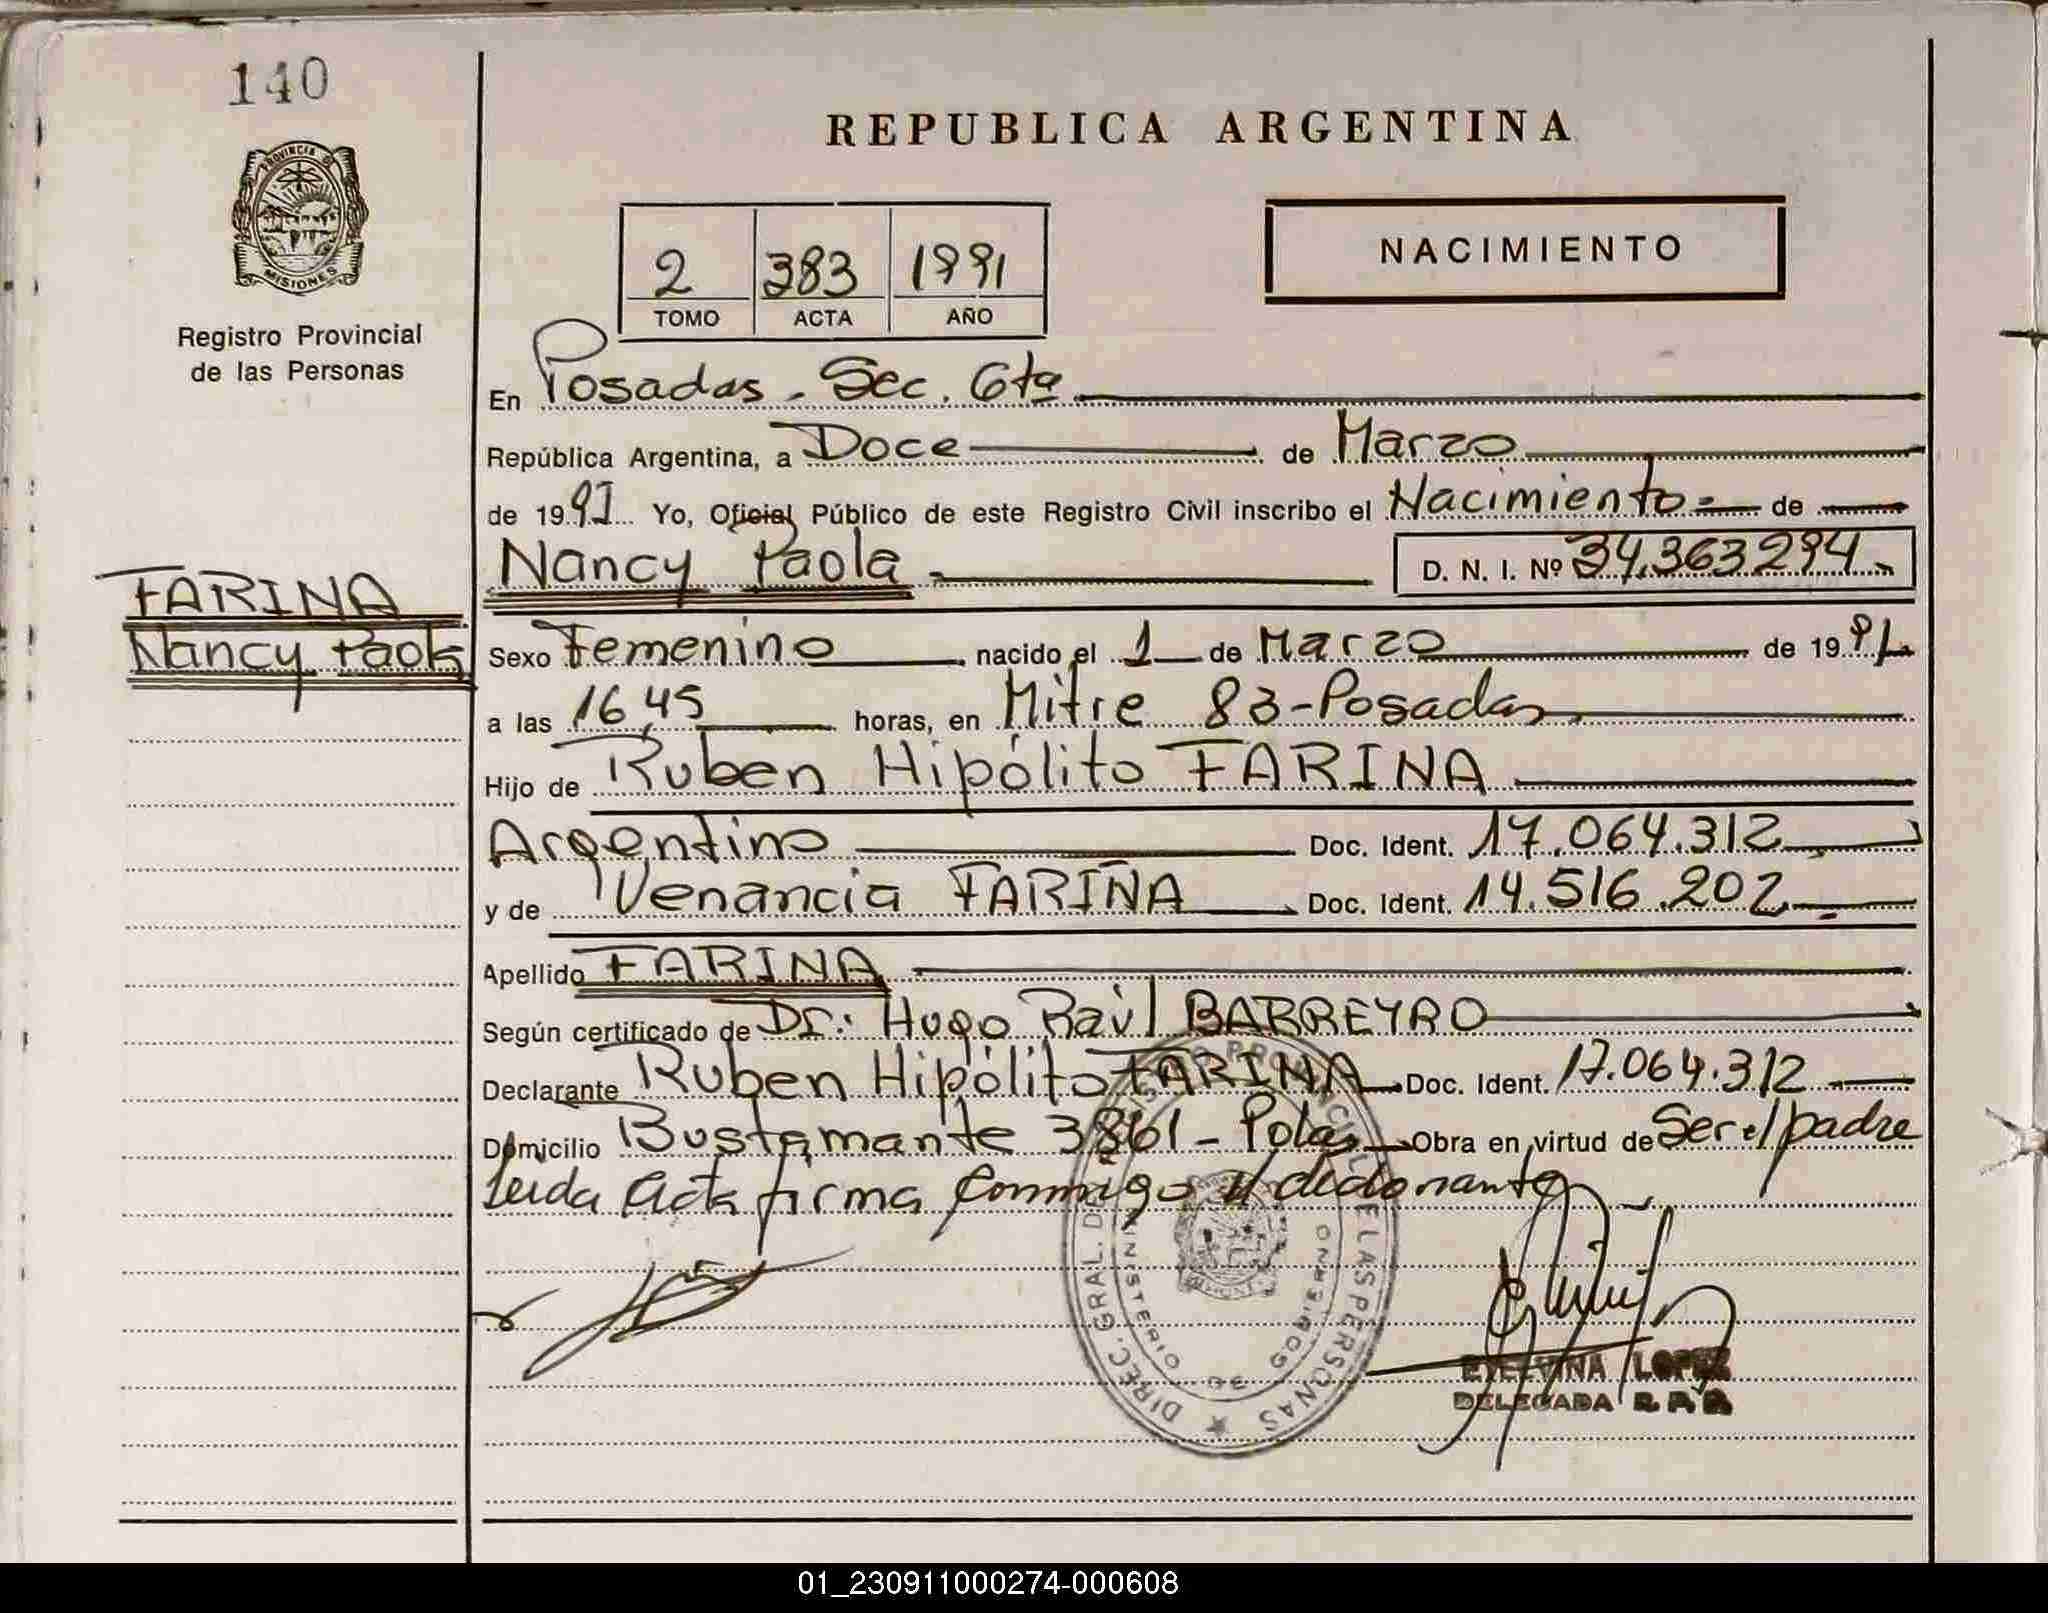 140
REPUBLICA ARGENTINA
PROVINCIA DE
MISIONES
Registro Provincial
de las Personas
2 383 1991
TOMO ACTA AÑO
NACIMIENTO
En Posadas - Sec. 6ta
República Argentina, a Doce de Marzo
de 1991 Yo, Oficial Público de este Registro Civil inscribo el Nacimiento de
Nancy Paola D. N. I. Nº 34.363294
FARINA
Nancy Paola
Sexo Femenino nacido el 1 de Marzo de 1991
a las 16,45 horas, en Mitre 83-Posadas
Hijo de Ruben Hipólito FARINA
Argentino Doc. Ident. 17.064.312
y de Venancia FARIÑA Doc. Ident. 14.516.202
Apellido FARINA
Según certificado de Dr.: Hugo Raúl BARREYRO
Declarante Ruben Hipólito FARINA Doc. Ident. 17.064.312
Domicilio Bustamante 3861 - Pdas Obra en virtud de Ser el padre
Leida Acta firma conmigo el declarante
DIREC. GRAL. DEL REGISTRO PROVINCIAL DE LAS PERSONAS
MINISTERIO DE GOBIERNO
EVELVINA LOPEZ
DELEGADA
01_230911000274-000608